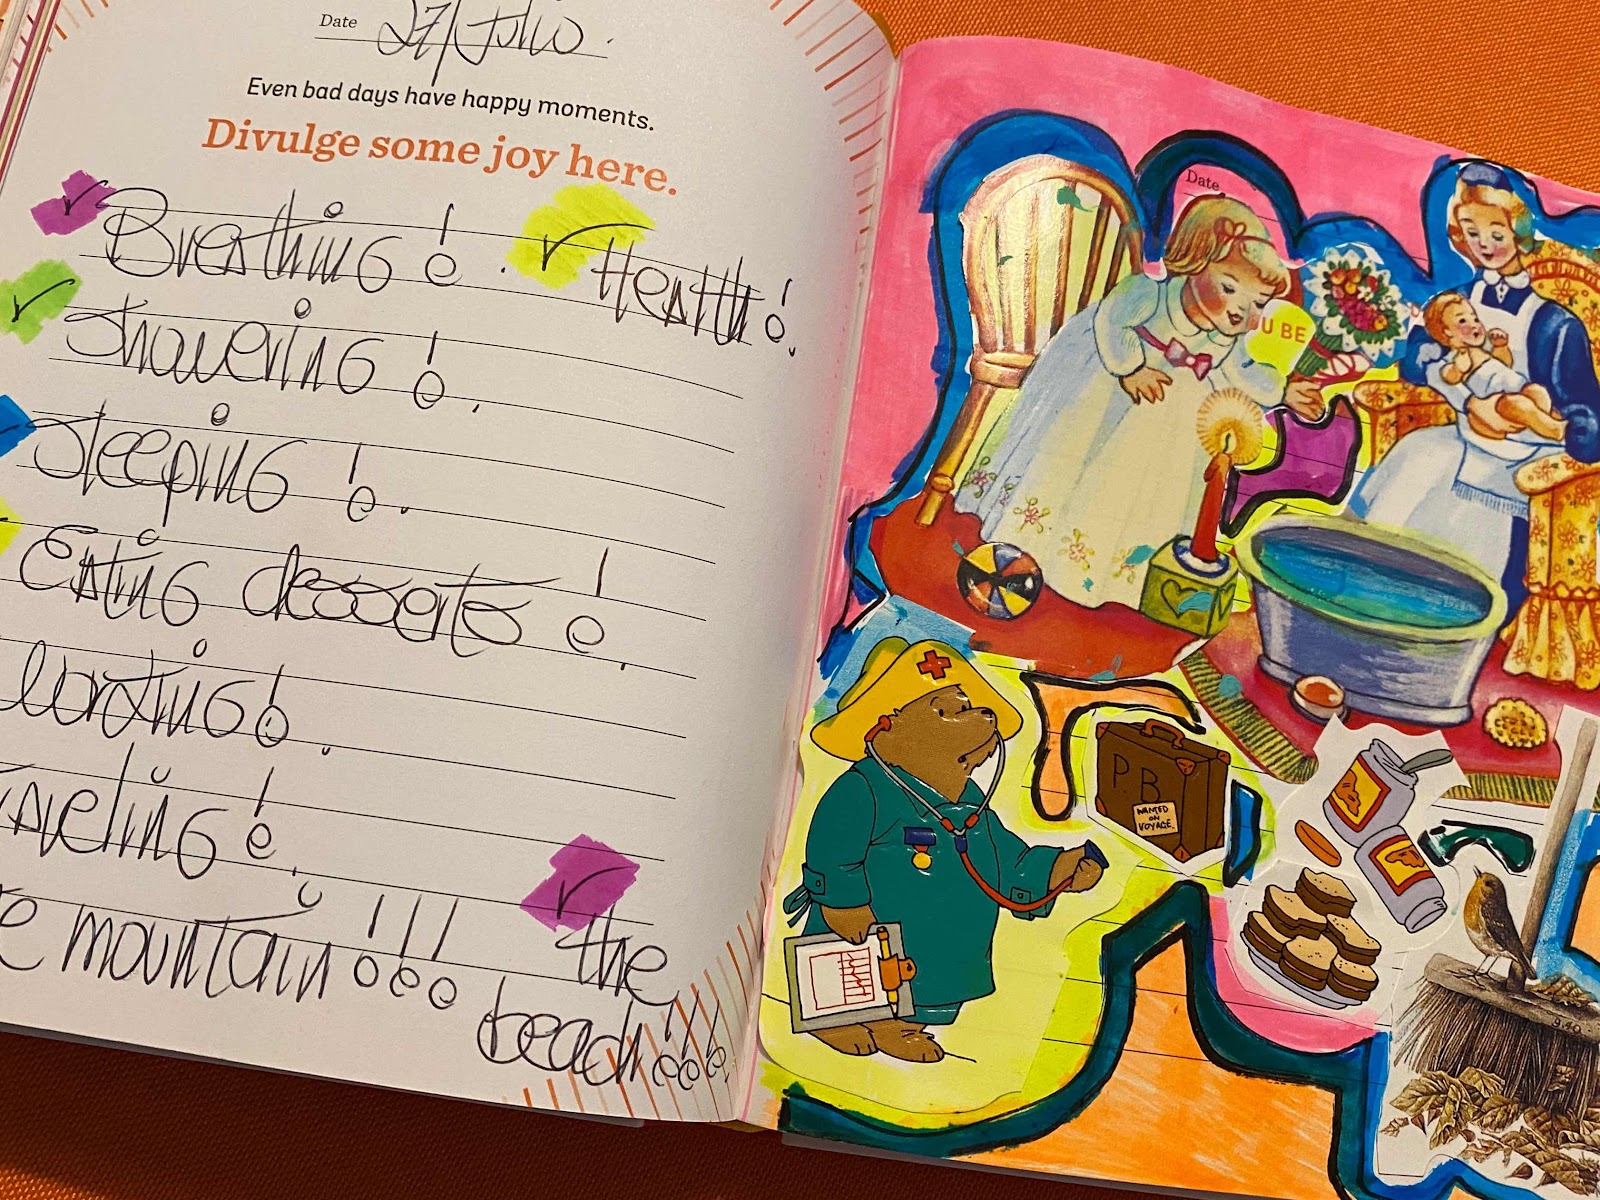 Date 27/Julio.
Even bad days have happy moments.
Divulge some joy here.
Breathing!.
Health!.
Showering!.
Sleeping!.
Eating desserts!.
raveling!.
e mountain!!!
the
beach!!!
Date
U BE
PB
WANTED
ON
VOYAGE.
940